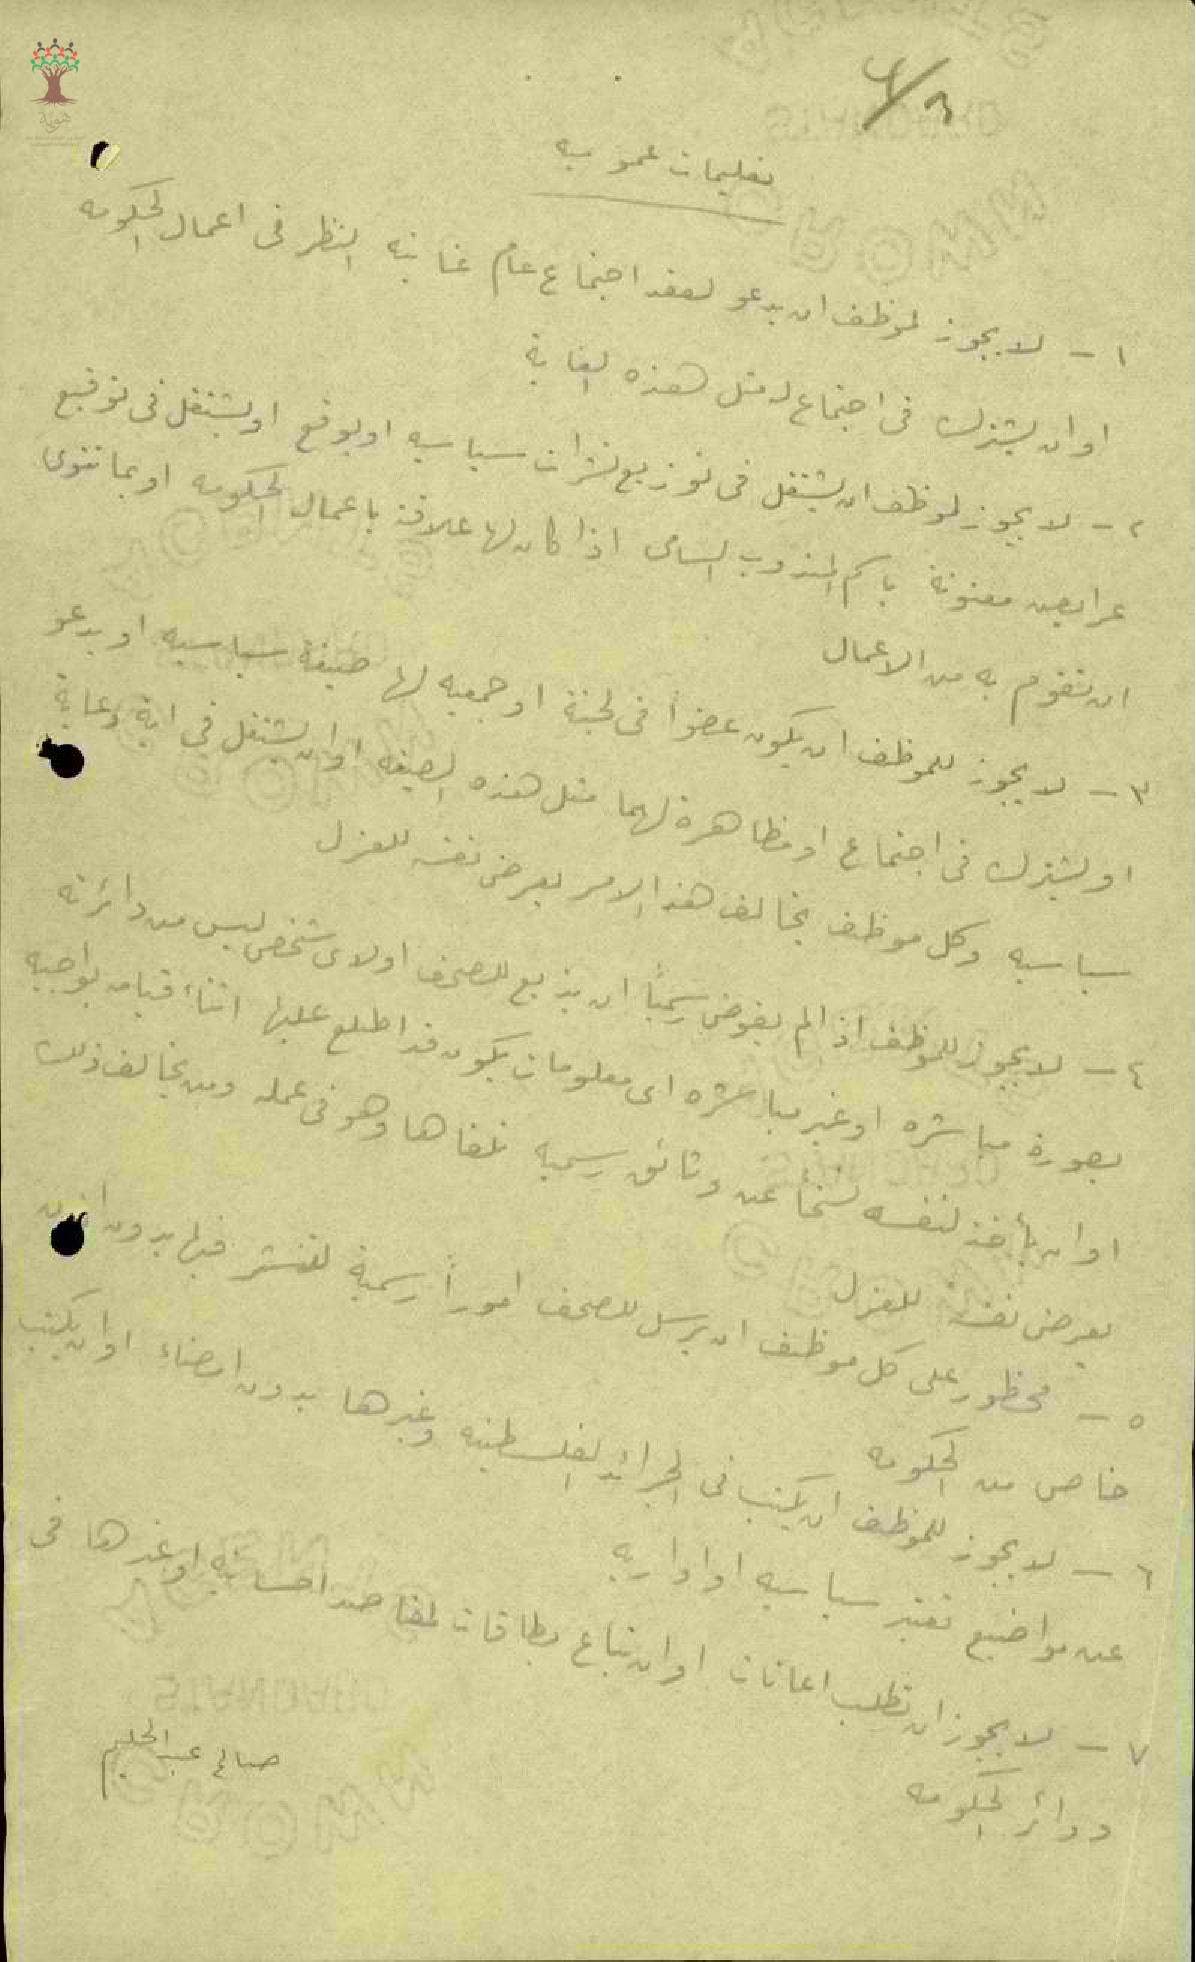 تعليمات عموميه
١ - لا يجوز لموظف ان يدعو لعقد اجتماع عام غايته النظر في اعمال الحكومه
او ان يشترك في اجتماع لمثل هذه الغاية
٢ - لا يجوز لموظف ان يشتغل في توزيع نشرات سياسيه او يوقع او يشتغل في توقيع
عرايض معنونة باسم المندوب السامي اذا كان لها علاقة باعمال الحكومه او بما تنوى
ان تقوم به من الاعمال
٣ - لا يجوز للموظف ان يكون عضواً في لجنة او جمعيه لها صبغة سياسيه او يدعو
او يشترك في اجتماع او مظاهرة لهما مثل هذه الصبغه او ان يشتغل في اية دعاية
سياسيه وكل موظف يخالف هذا الامر يعرض نفسه للعزل
٤ - لا يجوز للموظف اذا لم يفوض رسمياً ان يذيع للصحف او لاى شخص ليس من دائرته
بصورة مباشره او غير مباشره اى معلومات يكون قد اطلع عليها اثناء قيامه بواجبه
او ان يأخذ لنفسه نسخاً عن وثائق رسميه تلقاها وهو في عمله ومن يخالف ذلك
يعرض نفسه للعزل
٥ - محظور على كل موظف ان يرسل للصحف اموراً رسمية لتنشر فيها بدون اذن
خاص من الحكومه
٦ - لا يجوز للموظف ان يكتب في الجرائد الفلسطينيه وغيرها بدون امضاء او ان يكتب
عن مواضيع تعتبر سياسيه او اداريه
٧ - لا يجوز ان تطلب اعانات او ان تباع بطاقات لمقاصد احسانيه او غيرها في
دوائر الحكومه
صالح عبد الحليم